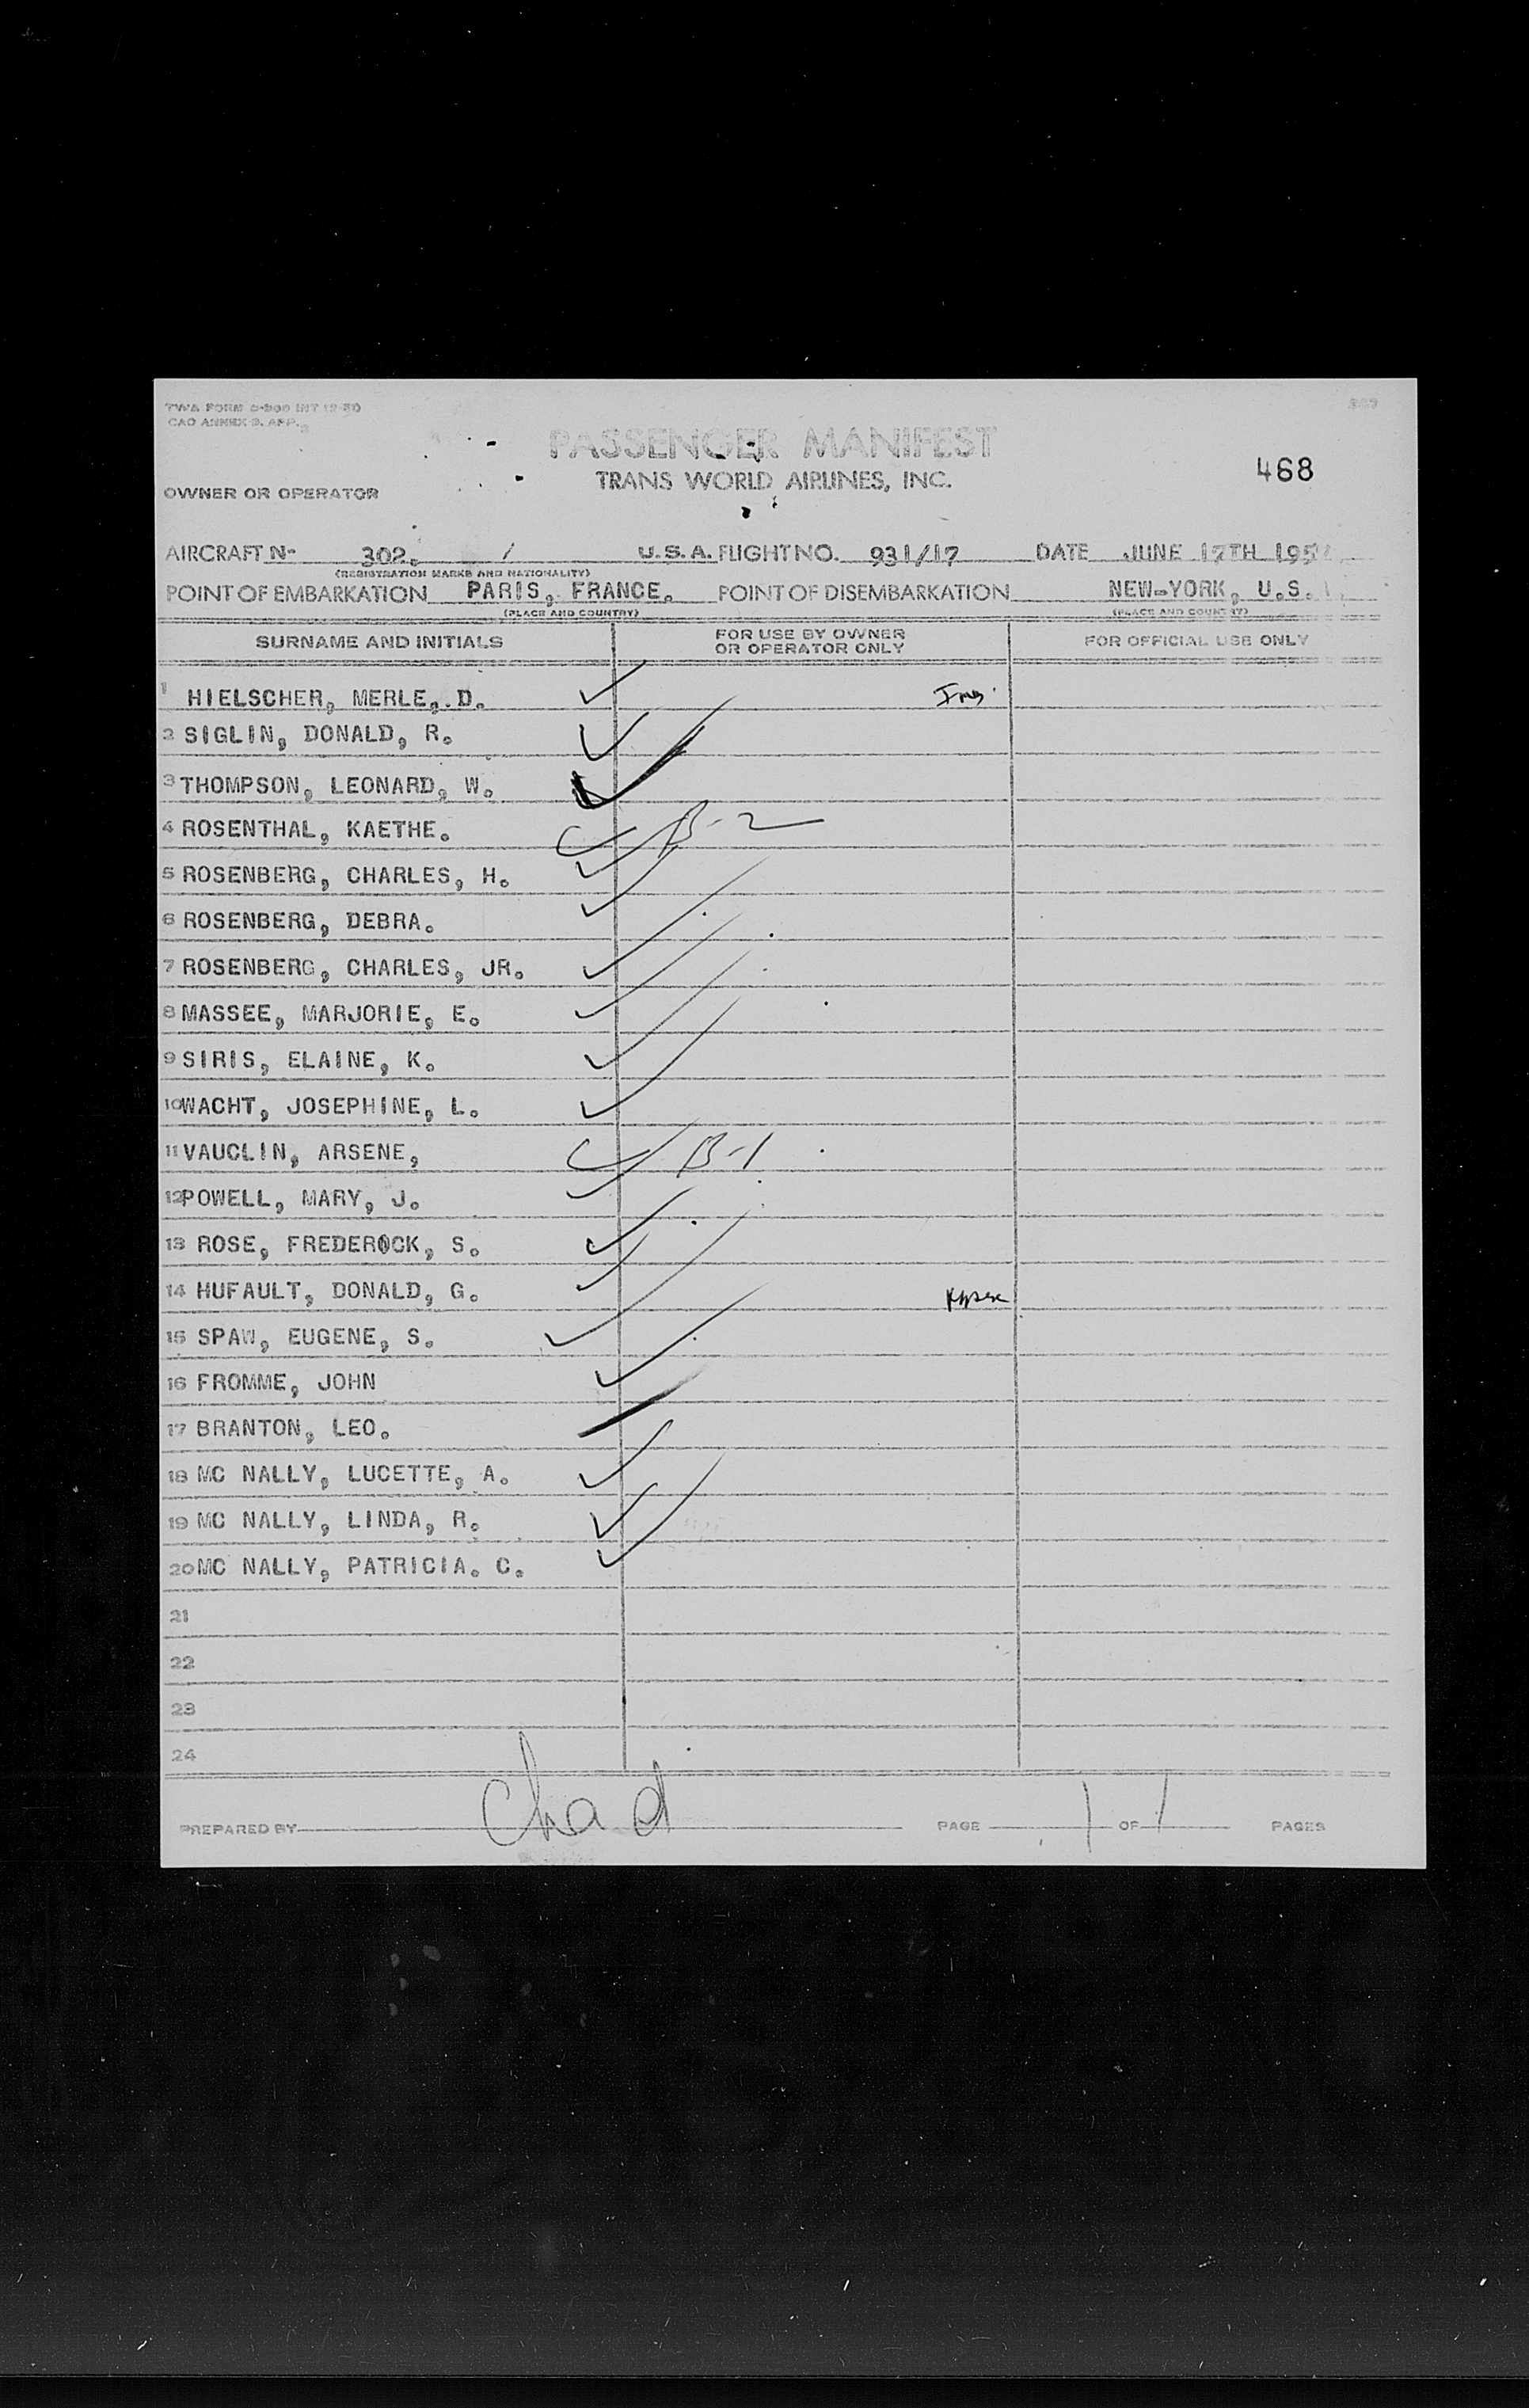 TWA FORM INT 12-50
CAO ANNEX 9. APP.
PASSENGER MANIFEST
TRANS WORLD AIRLINES, INC.
468
OWNER OR OPERATOR
AIRCRAFT N- 302. / U.S.A. FLIGHT NO. 931/17 DATE JUNE 17TH
(REGISTRATION MARKS AND NATIONALITY)
POINT OF EMBARKATION PARIS, FRANCE. POINT OF DISEMBARKATION NEW-YORK, U.S.
(PLACE AND COUNTRY) (PLACE AND COUNTRY)
SURNAME AND INITIALS FOR USE BY OWNER OR OPERATOR ONLY FOR OFFICIAL USE ONLY
1 HIELSCHER, MERLE,.D.
2 SIGLIN, DONALD, R.
3 THOMPSON, LEONARD, W.
4 ROSENTHAL, KAETHE. B-2
5 ROSENBERG, CHARLES, H.
6 ROSENBERG, DEBRA.
7 ROSENBERG, CHARLES, JR.
8 MASSEE, MARJORIE, E.
9 SIRIS, ELAINE, K.
10 WACHT, JOSEPHINE, L.
11 VAUCLIN, ARSENE, B-1
12 POWELL, MARY, J.
13 ROSE, FREDEROCK, S.
14 HUFAULT, DONALD, G.
15 SPAW, EUGENE, S.
16 FROMME, JOHN
17 BRANTON, LEO.
18 MC NALLY, LUCETTE, A.
19 MC NALLY, LINDA, R.
20 MC NALLY, PATRICIA. C.
21
22
23
24
PREPARED BY PAGE 1 OF 1 PAGES